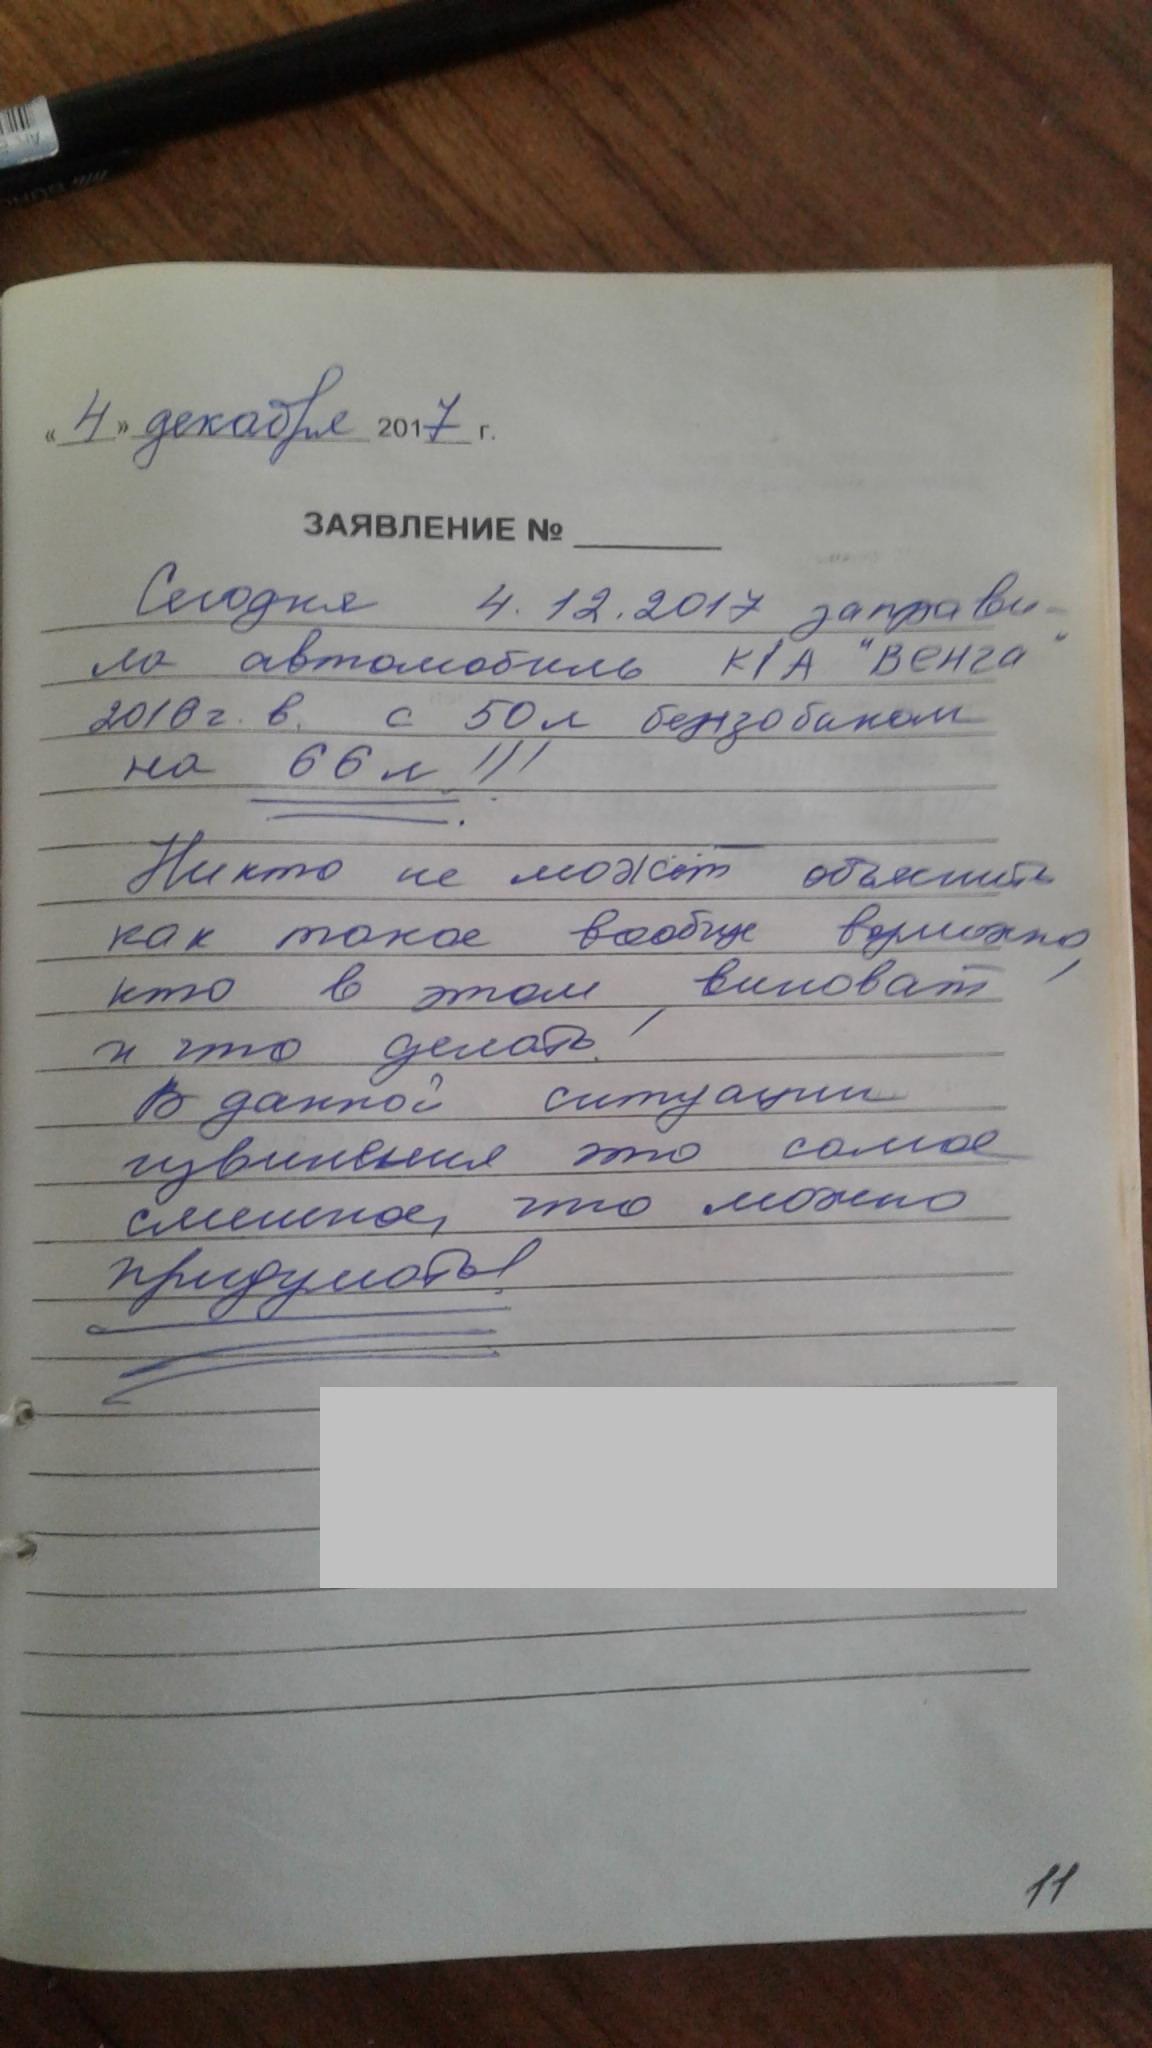 « 4 » декабря 2017 г.
ЗАЯВЛЕНИЕ № ______
Сегодня 4.12.2017 заправи-
ла автомобиль KIA "Венга"
2016 г. в. с 50 л бензобаком
на 66 л !!!
Никто не может объяснить
как такое вообще возможно,
кто в этом виноват,
и что делать!
В данной ситуации
извинения это самое
смешное, что можно
придумать!
11